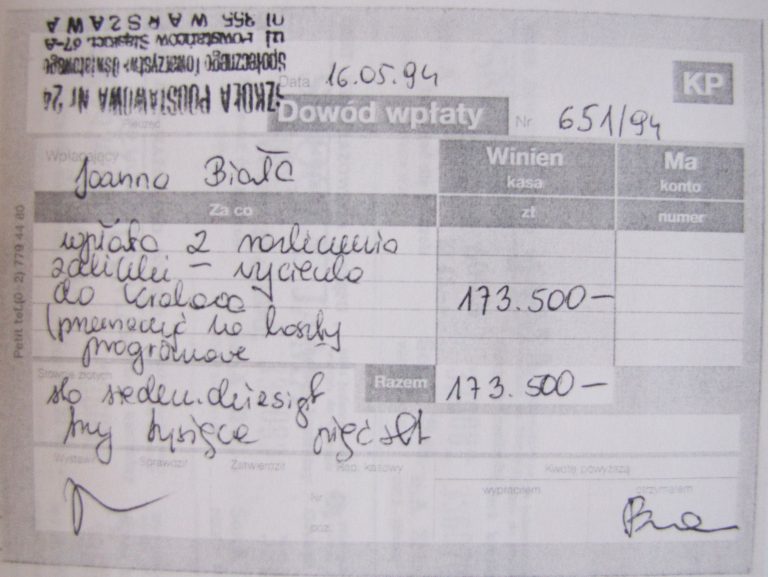 SZKOŁA PODSTAWOWA Nr 24
Społecznego Towarzystwa Oświatowego
ul. Powstańców Śląskich 67-A
01-355 WARSZAWA
Pieczęć
Data 16.05.94
KP
Dowód wpłaty
Nr 651/94
Wpłacający
Joanna Biała
Winien
kasa
Ma
konto
Za co
zł
numer
wpłata z rozliczenia
zaliczki – wycieczka
do Krakowa
173.500–
(przeznaczyć na koszty
programowe
Słownie złotych
Razem
173.500–
sto siedemdziesiąt
trzy tysiące pięćset
Wystawił
Sprawdził
Zatwierdził
Rap. kasowy
Kwotę powyższą
Nr
wypłaciłem
otrzymałem
poz.